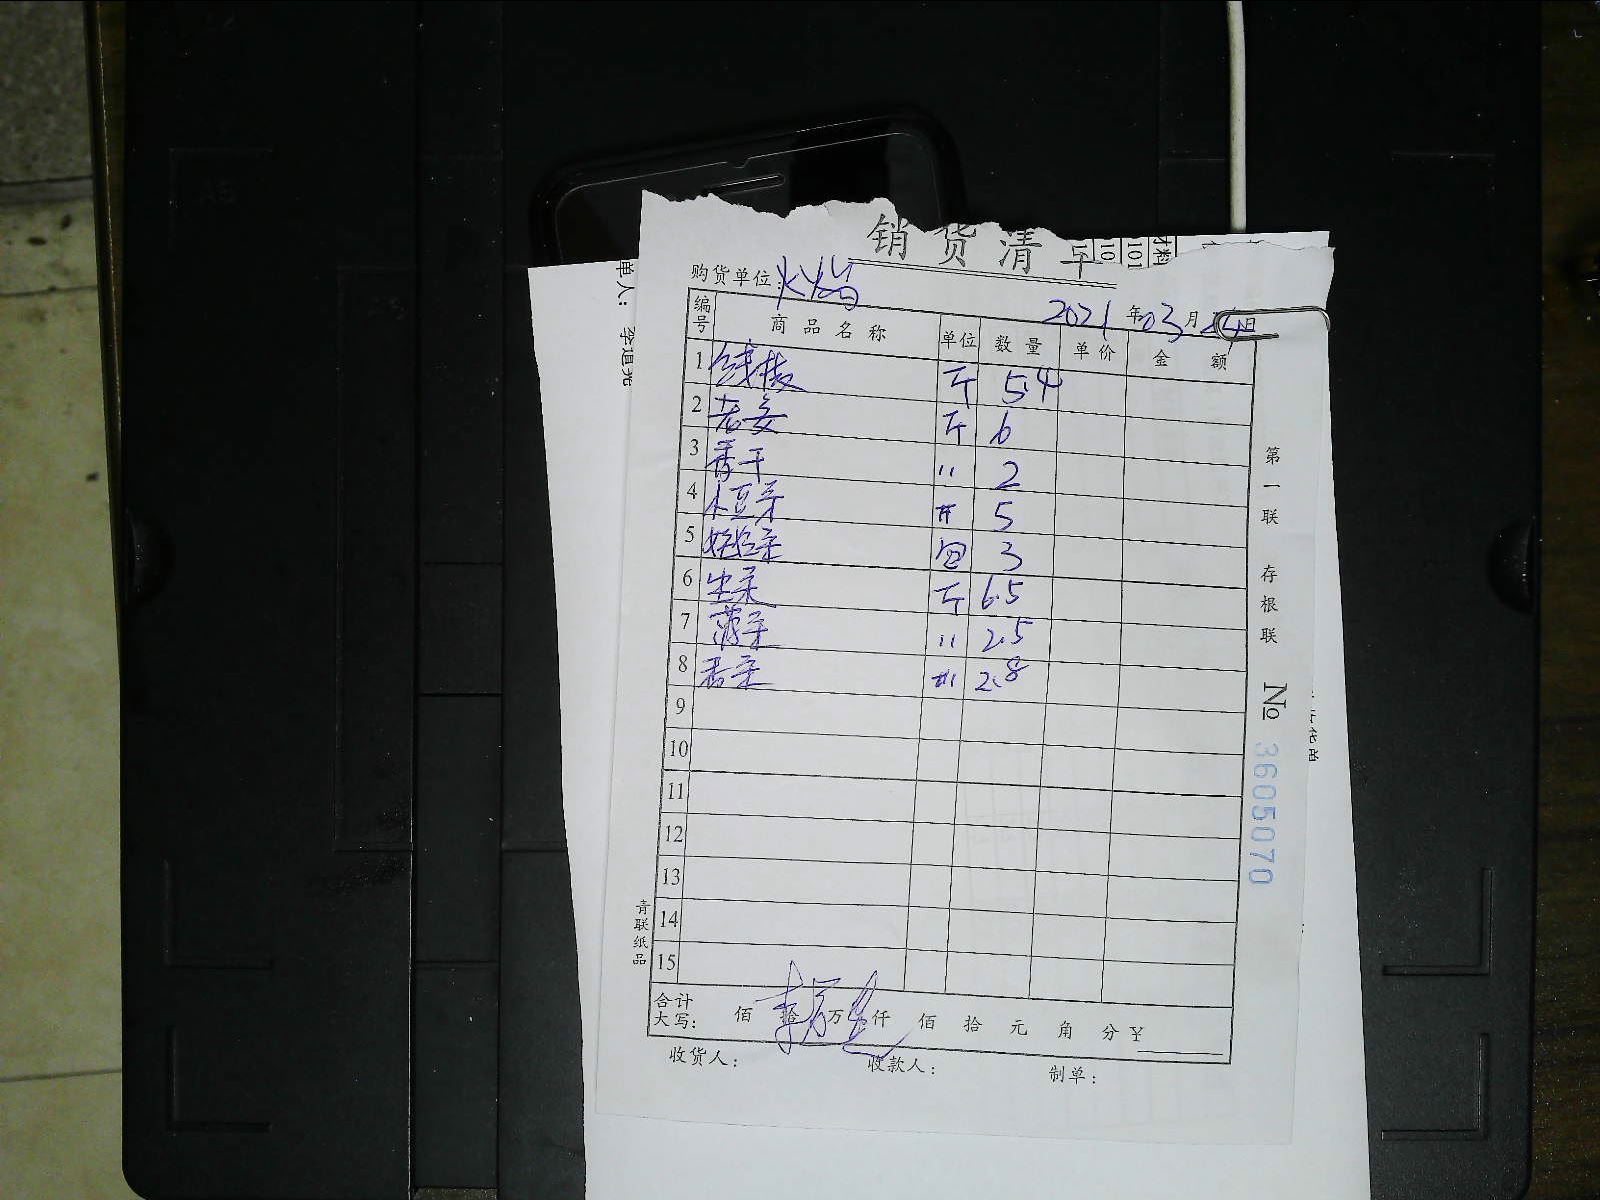 销货清单
购货单位: 火焰
2021 年 03 月 24 日
编号 商品名称 单位 数量 单价 金额
1 线椒 斤 5.4
2 老姜 斤 6
3 香干 〃 2
4 小豆芽 斤 5
5 3
6 生菜 斤 6.5
7 菠菜 〃 2.5
8 香菜 2.8
9
10
11
12
13
14
15
合计大写: 佰 拾 万 仟 佰 拾 元 角 分 ¥
收货人: 收款人: 制单:
第一联 存根联
No 3605070
青联纸品
单人:
材料
101
10